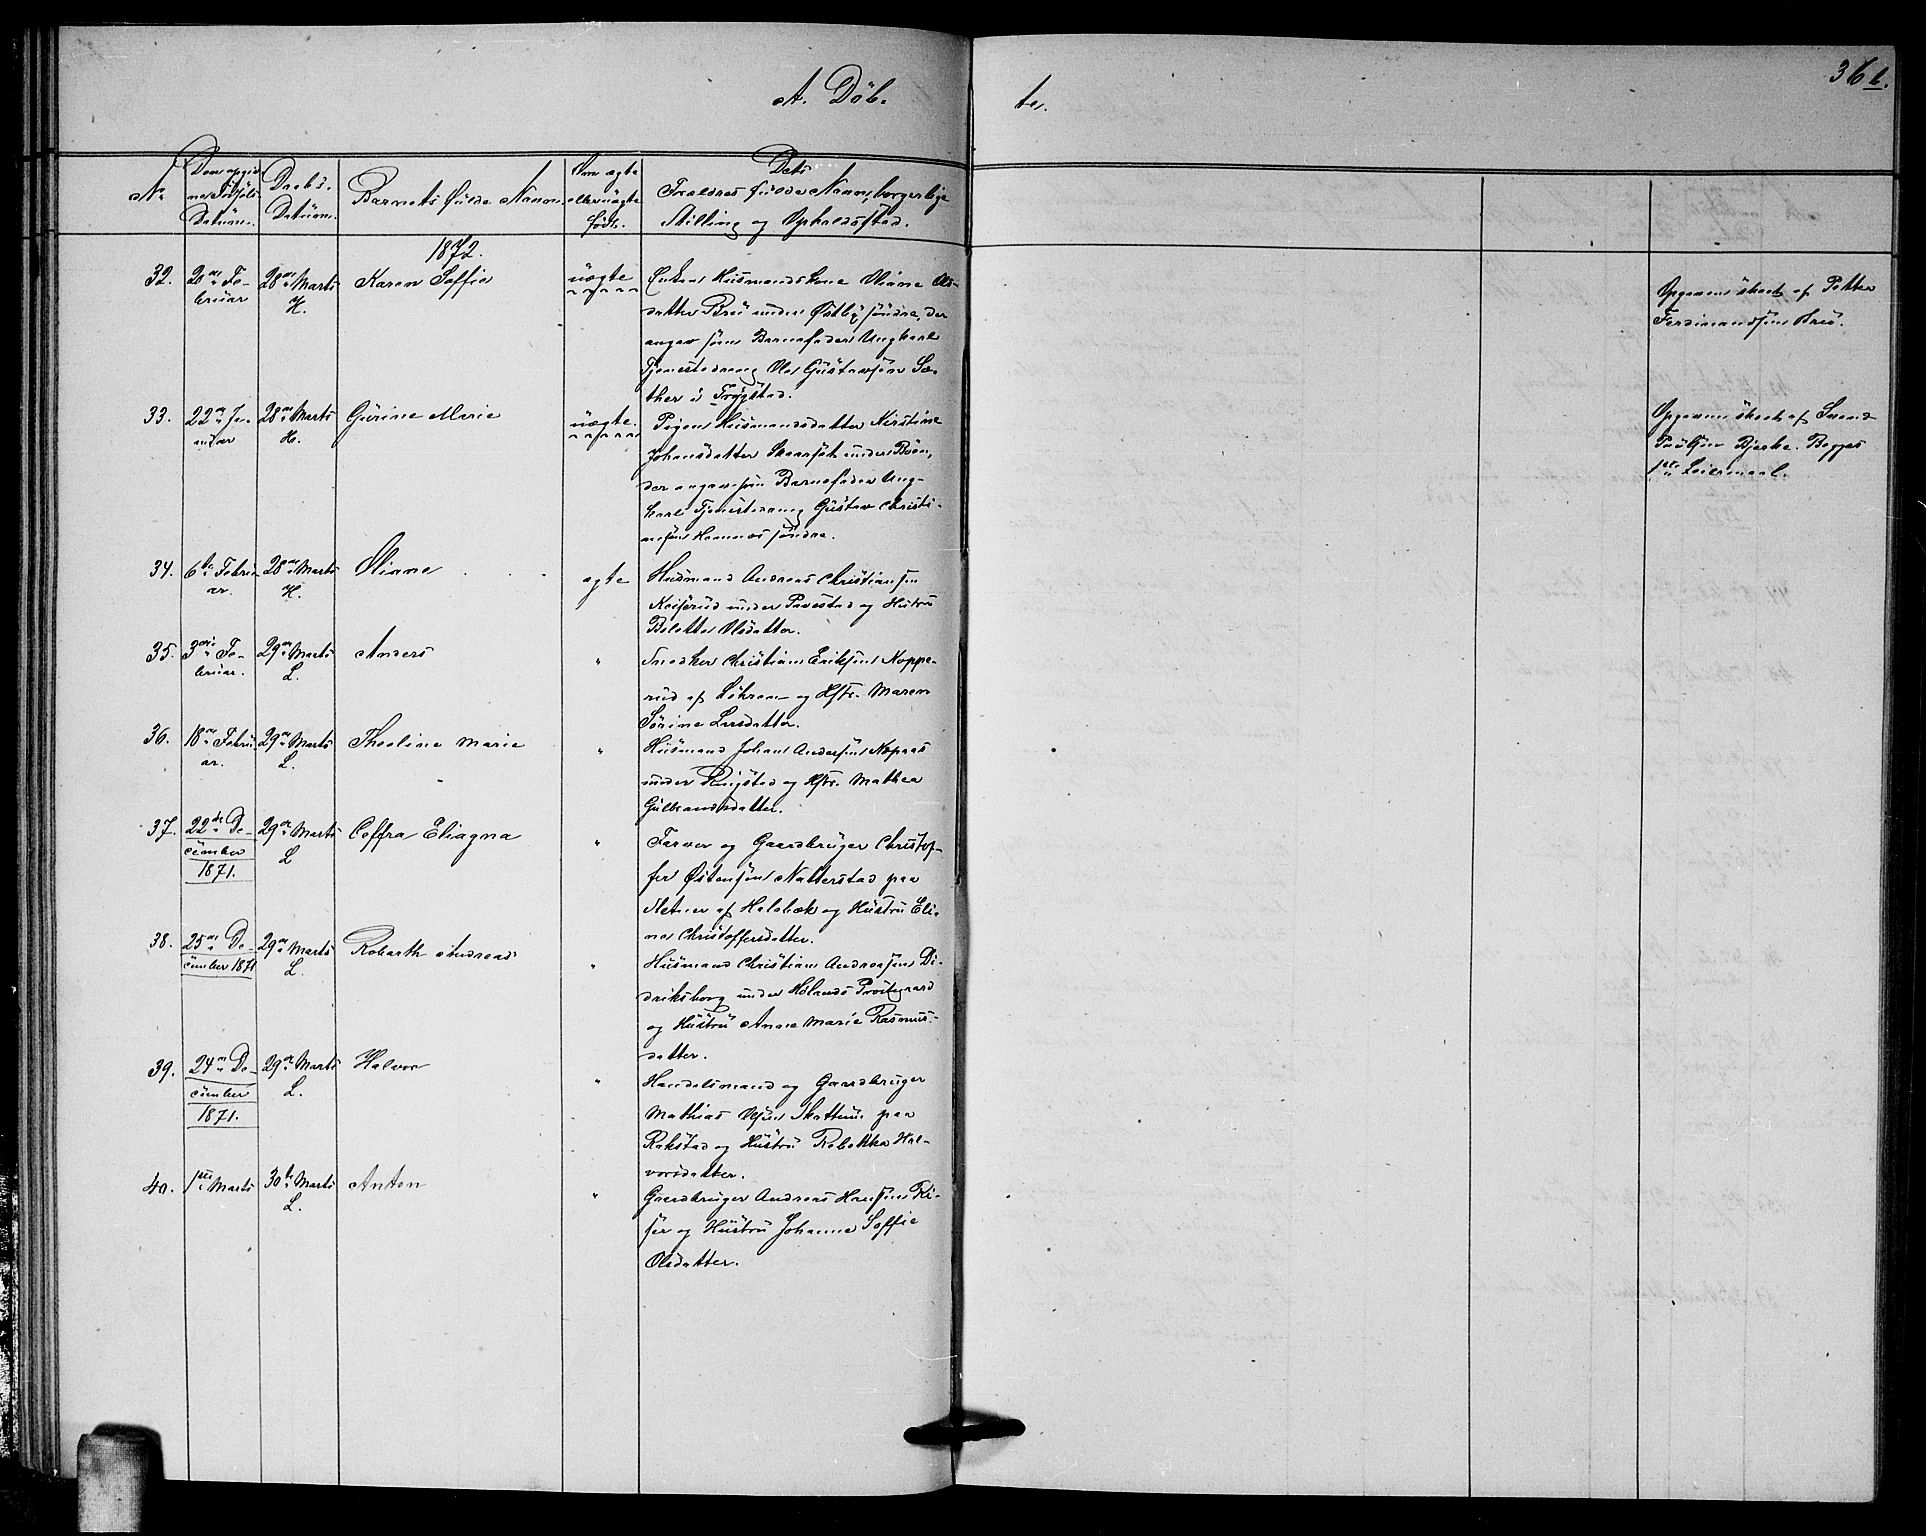 36 b.
A. Döb-
te.
No
Den opgiv-
ne Födsels
Datum.
Daabs-
Datum.
Barnets fulde Navn
Om ægte
eller uægte
født.
Dets
Forældres fulde Navn, borgerlige
Stilling og Opholdssted.
1872.
32. 28de Fe-
bruar
28de Marts
K.
Karen Soffie
uægte
Enken Husmandskone Oliane Ols-
datter Brú under Østby søndre, der
angav som Barnefader Ungkarl
Tjenestedreng Ole Gústavsen Sæ-
ther i Trøgstad.
Opgaven skeet af Petter
Ferdinandsen Brú.
33. 22de Ja-
nuar
28de Marts
K.
Gúrine Marie
uægte.
Pigen Húsmandsdatter Kirstine
Johansdatter Skaarsøt under Bøen,
der angav som Barnefader Ung-
karl Tjenestedreng Gústav Christi-
ansen Hemnes søndre.
Opgaven skeet af Svend
Paúlsen Bjerke. Begges
1ste Leiermaal.
34. 6te Februa-
ar.
28de Marts
K.
Oliane
ægte
Húsmand Andreas Christiansen
Keiserud under Pavestad og Hústrú
Beletta Olsdatter.
35. 3die Fe-
bruar.
29de Marts
L.
Anders
"
Snedker Christian Eriksen Noppe-
rud af Løkren og Hstr. Maren
Sørine Larsdatter.
36. 18de Februar
ar.
29de Marts
L.
Theoline Marie
"
Húsmand Johan Andersen Nopras
under Ringstad og Hstr. Mathea
Gúlbrandsdatter.
37. 22de De-
cember
1871.
29de Marts
L
Ceffra Eliagna
"
Farver og Gaardbruger Christof-
fer Østensen Natterstad paa
Netner af Holsbæk og Hústrú Eli-
ne Christoffersdatter.
38. 25de De-
cember 1871
29de Marts
L.
Robarth Andreas
"
Húsmand Christian Andreasen Di-
driksborg under Hølands Prestgaard
og Hústrú Anne Marie Rasmus-
datter.
39. 24de De-
cember
1871.
29de Marts
L.
Halvor
"
Handelsmand og Gaardbruger
Mathias Olsen Skattum paa
Rakstad og Hústrú Rebekka Hal-
vorsdatter.
40. 1ste Marts
30te Marts
L.
Anton
"
Gaardbruger Andreas Hansen Ki-
ser og Hústrú Johanne Soffie
Olsdatter.